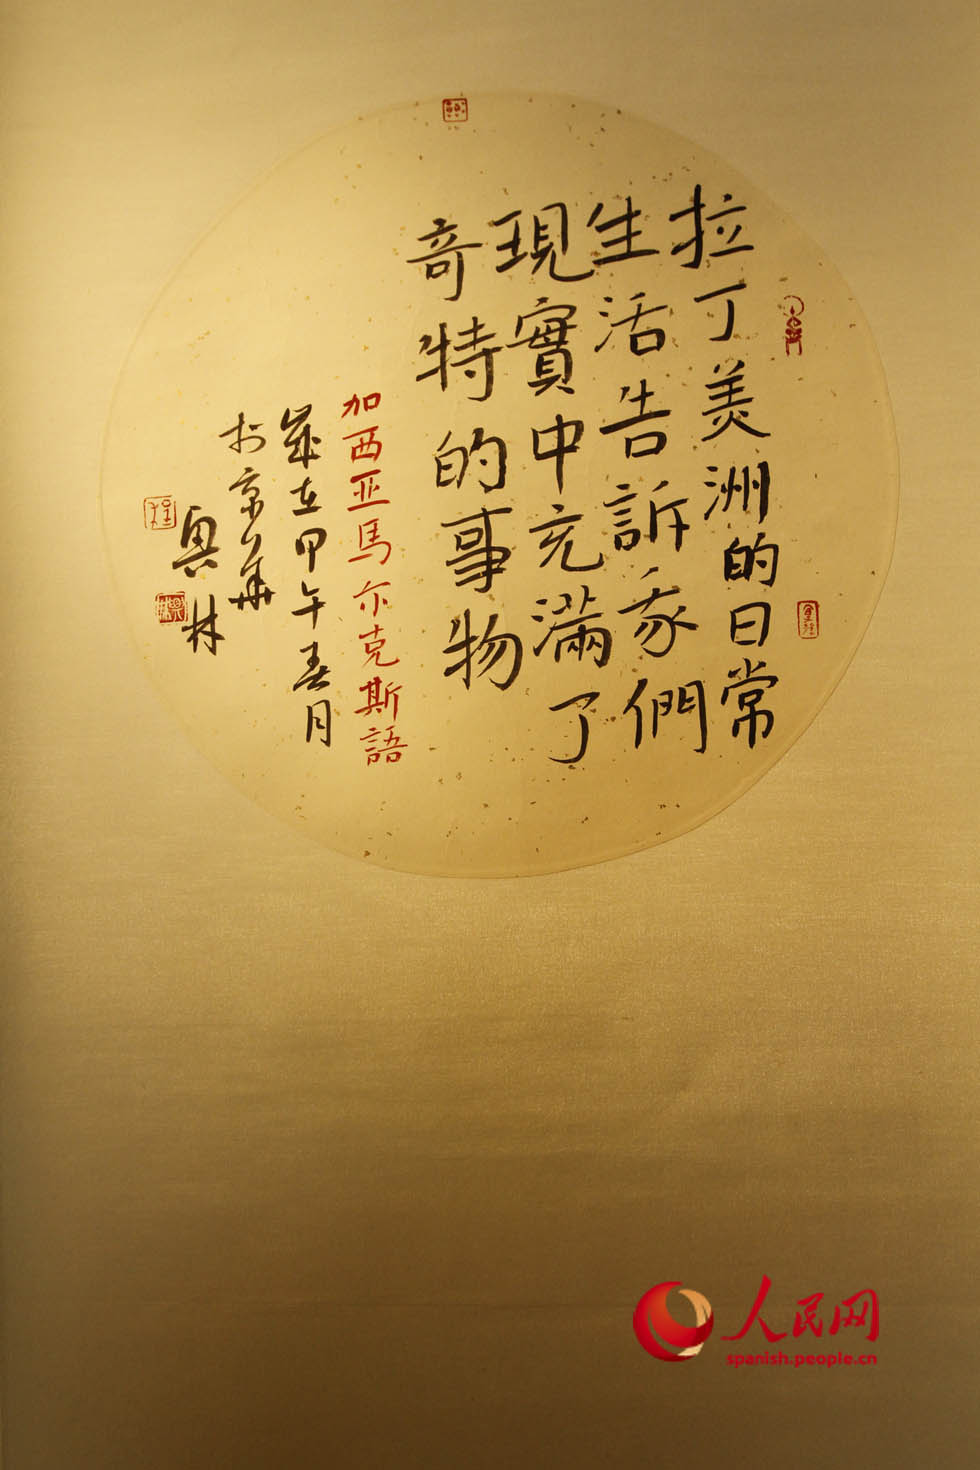 拉丁美洲的日常
生活告訴我們
現實中充滿了
奇特的事物
加西亚馬尔克斯語
歲在甲午春月
於京華
興林
人民网
spanish.people.cn